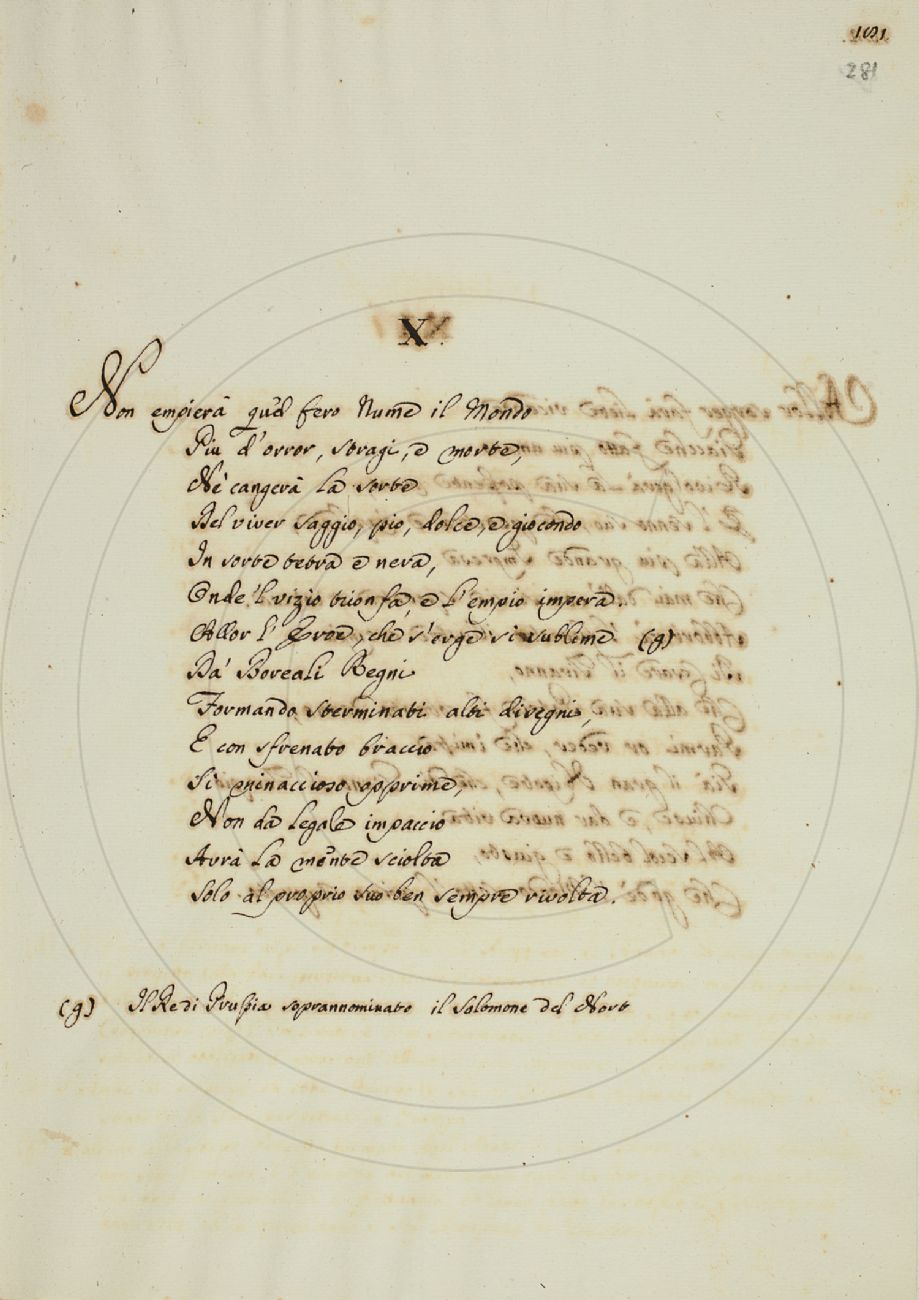 181
281
X.
Non empierà quel fero Nume il Mondo
Piu d'orror, stragi, e morte,
Nè cangerà la sorte
Del viver saggio, pio, dolce, e giocondo
In sorte tetra e nera,
Onde 'l vizio trionfa, e l'empio impera.
Allor l' Eroe, che s'erge sì sublime (g)
Da' Boreali Regni
Formando sterminati alti disegni,
E con sfrenato braccio
Sì minaccioso opprime,
Non da legale impaccio
Avrà la mente sciolta
Solo al proprio suo ben sempre rivolta.
(g) Il Re di Prussia soprannominato il Salomone del Nort